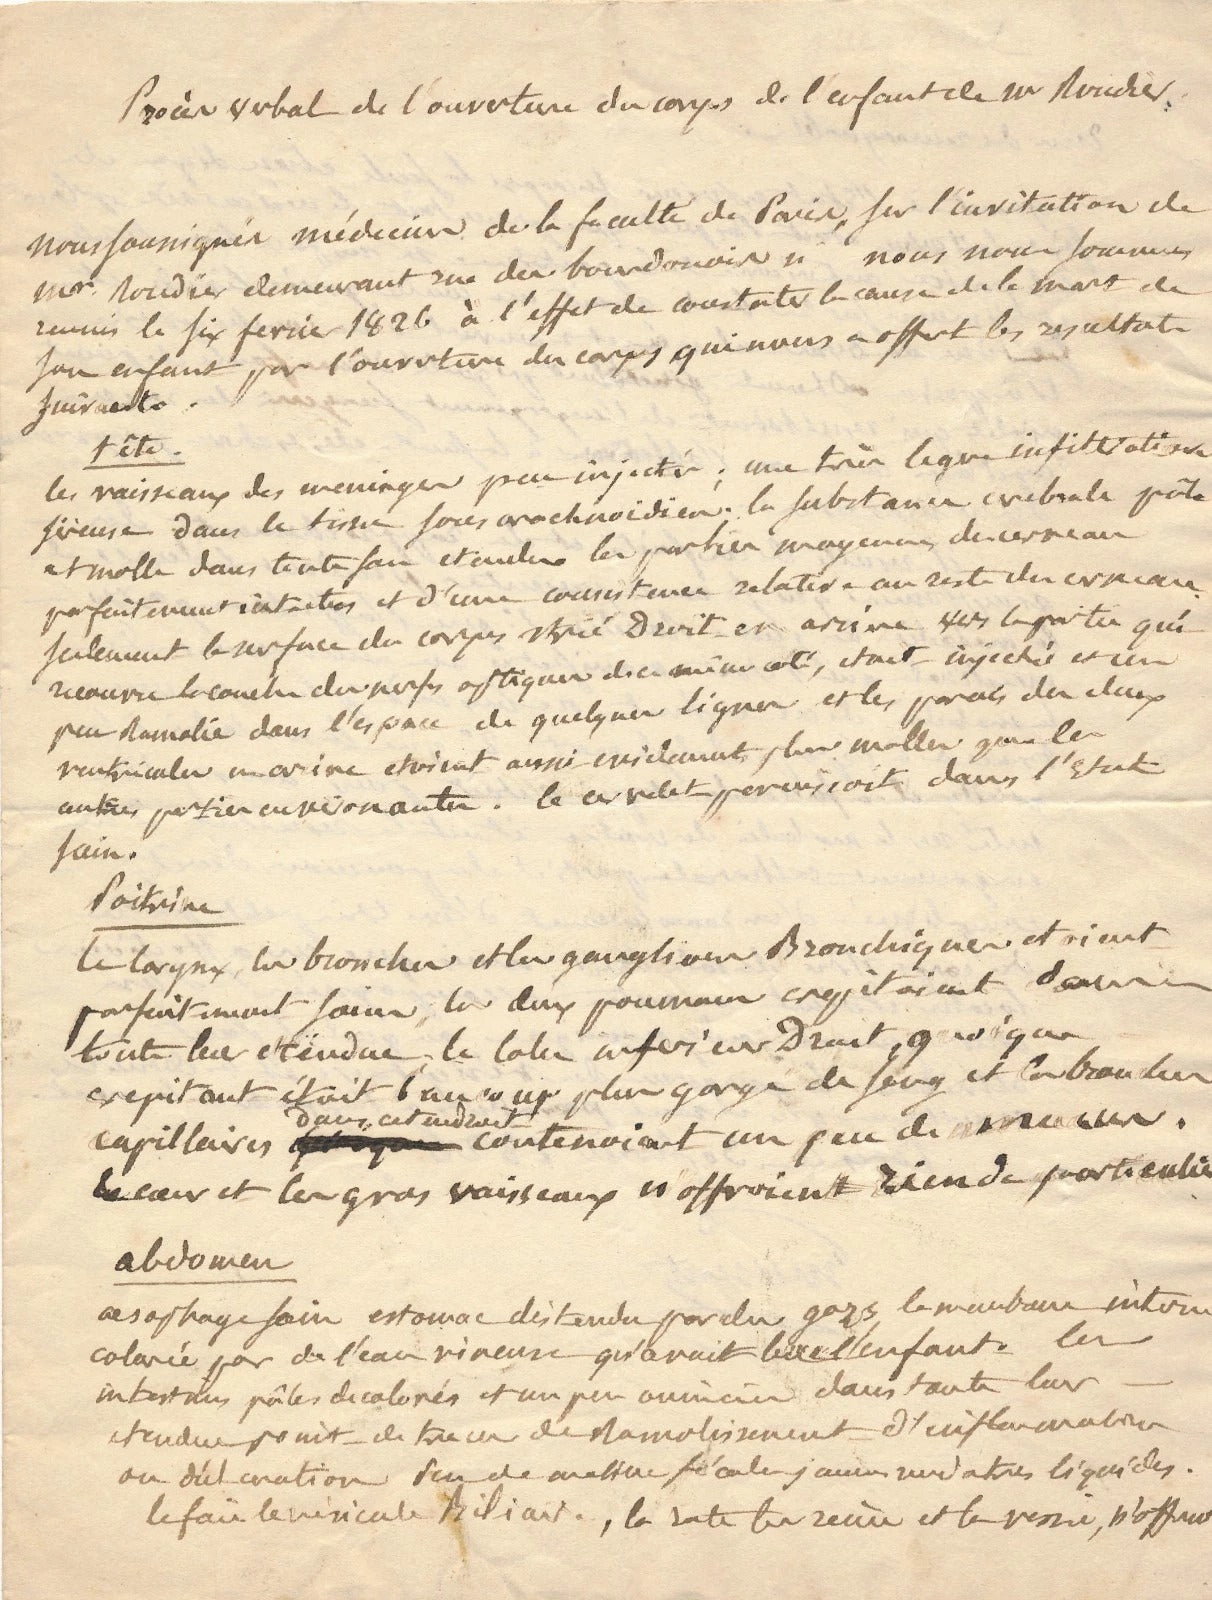 Procès verbal de l'ouverture du corps de l'enfant de Mr Roudier.
nous soussignés médecins de la faculté de Paris, sur l'invitation de
mr. Roudier demeurant rue des bourdonois n nous nous sommes
reunis le six fevrier 1826 à l'effet de constater la cause de la mort de
son enfant par l'ouverture du corps qui nous a offert les resultats
suivants.
tête.
les vaisseaux des meninges peu injectés; une très legere infiltration
séreuse dans le tissu sous arachnoidien. la substance cerebrale pâle
et molle dans toute son etendue les parties moyennes du cerveau
parfaitement intactes et d'une consistence relative au reste du cerveau.
seulement la surface du corps strié droit en ariere vers la partie qui
recouvre la couche des nerfs optiques du même coté, etait injectée et un
peu Ramolie dans l'espace de quelques lignes et les parois des deux
ventricules en ariere etoient aussi evidement plus molles que les
autres parties environantes. le cervelet paroissoit dans l'Etat
sain.
Poitrine
le larynx, les bronches et les ganglions Bronchiques etoient
parfaitement sains, les deux poumons crepitaient dans
toute leur etendue, le lobe inferieur Droit, quoique
crepitant était beaucoup plus gorgé de sang et les bronches
dans cet endroit
capillaires contenoient un peu de mucus.
le cœur et les gros vaisseaux n'offroient rien de particulier
abdomen
œsophage sain estomac distendu par des gazs, la membrane interne
colorée par de l'eau vineuse qu'avait bue l'enfant. les
intestins pâles decolorés et un peu amincis dans toute leur
etendue point de traces de Ramolissement d'inflammation
ou d'ulceration peu de matiere fécales jaunes verdatres liquides.
le foie la vesicule Biliaire, la rate les reins et la vessie, n'offroient